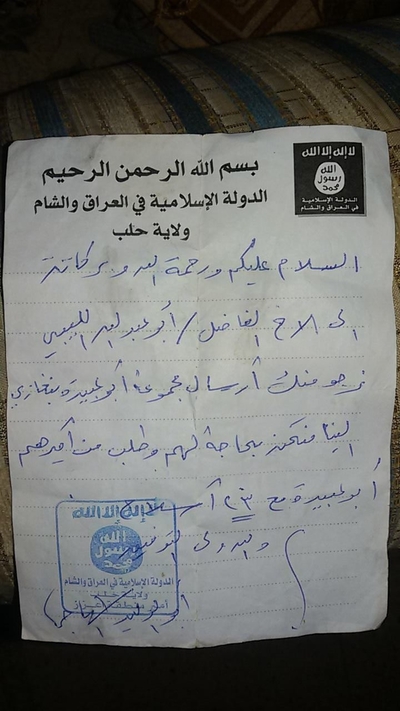 لا إله إلا الله
الله
رسول
محمد
الدولة الإسلامية
في العراق والشام
بسم الله الرحمن الرحيم
الدولة الإسلامية في العراق والشام
ولاية حلب
السلام عليكم ورحمة الله وبركاته
الى الاخ الفاضل / أبو عبد الله الليبي
نرجو منك أرسال مجموعة أبو عبيدة بنغازي
الينا فنحن بحاجة لهم وطلب من أميرهم
أبو عبيدة مع ٣٠ أ
والله ولي التوفيق
لا إله إلا الله
الله
رسول
محمد
الدولة الإسلامية في العراق والشام
ولاية حلب
أبو الوليد